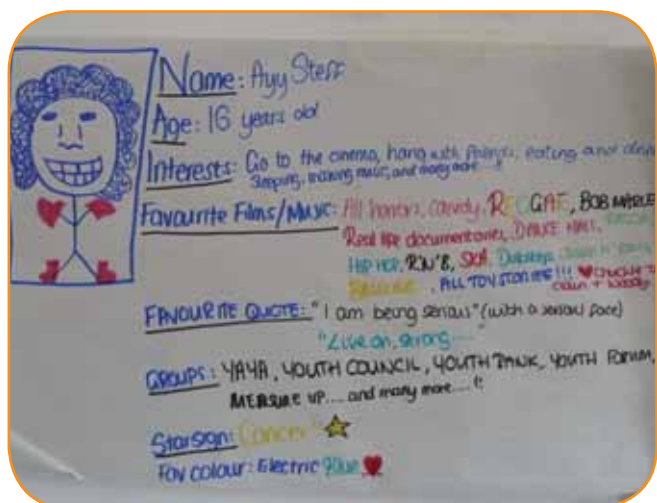 Name: Ayy Steff
Age: 16 years old
Interests: Go to the cinema, hang with friends, eating and
Sleeping, making music, and many more
Favourite Films/Music: All horrors, comedy, REGGAE, BOB MARLEY
Real life documentaries, DANCE HALL,
HIP HOP, RN'B, SKA, Dubstep,
, ALL TOY STORIES!!!
clown + woody
FAVOURITE QUOTE: "I am being serious" (with a serious face)
"Live on, strong....
GROUPS: YAYA, YOUTH COUNCIL, YOUTH BANK, YOUTH FORUM,
MEASURE UP.... and many more....!!
Starsign: Cancer
Fav colour: Electric Blue